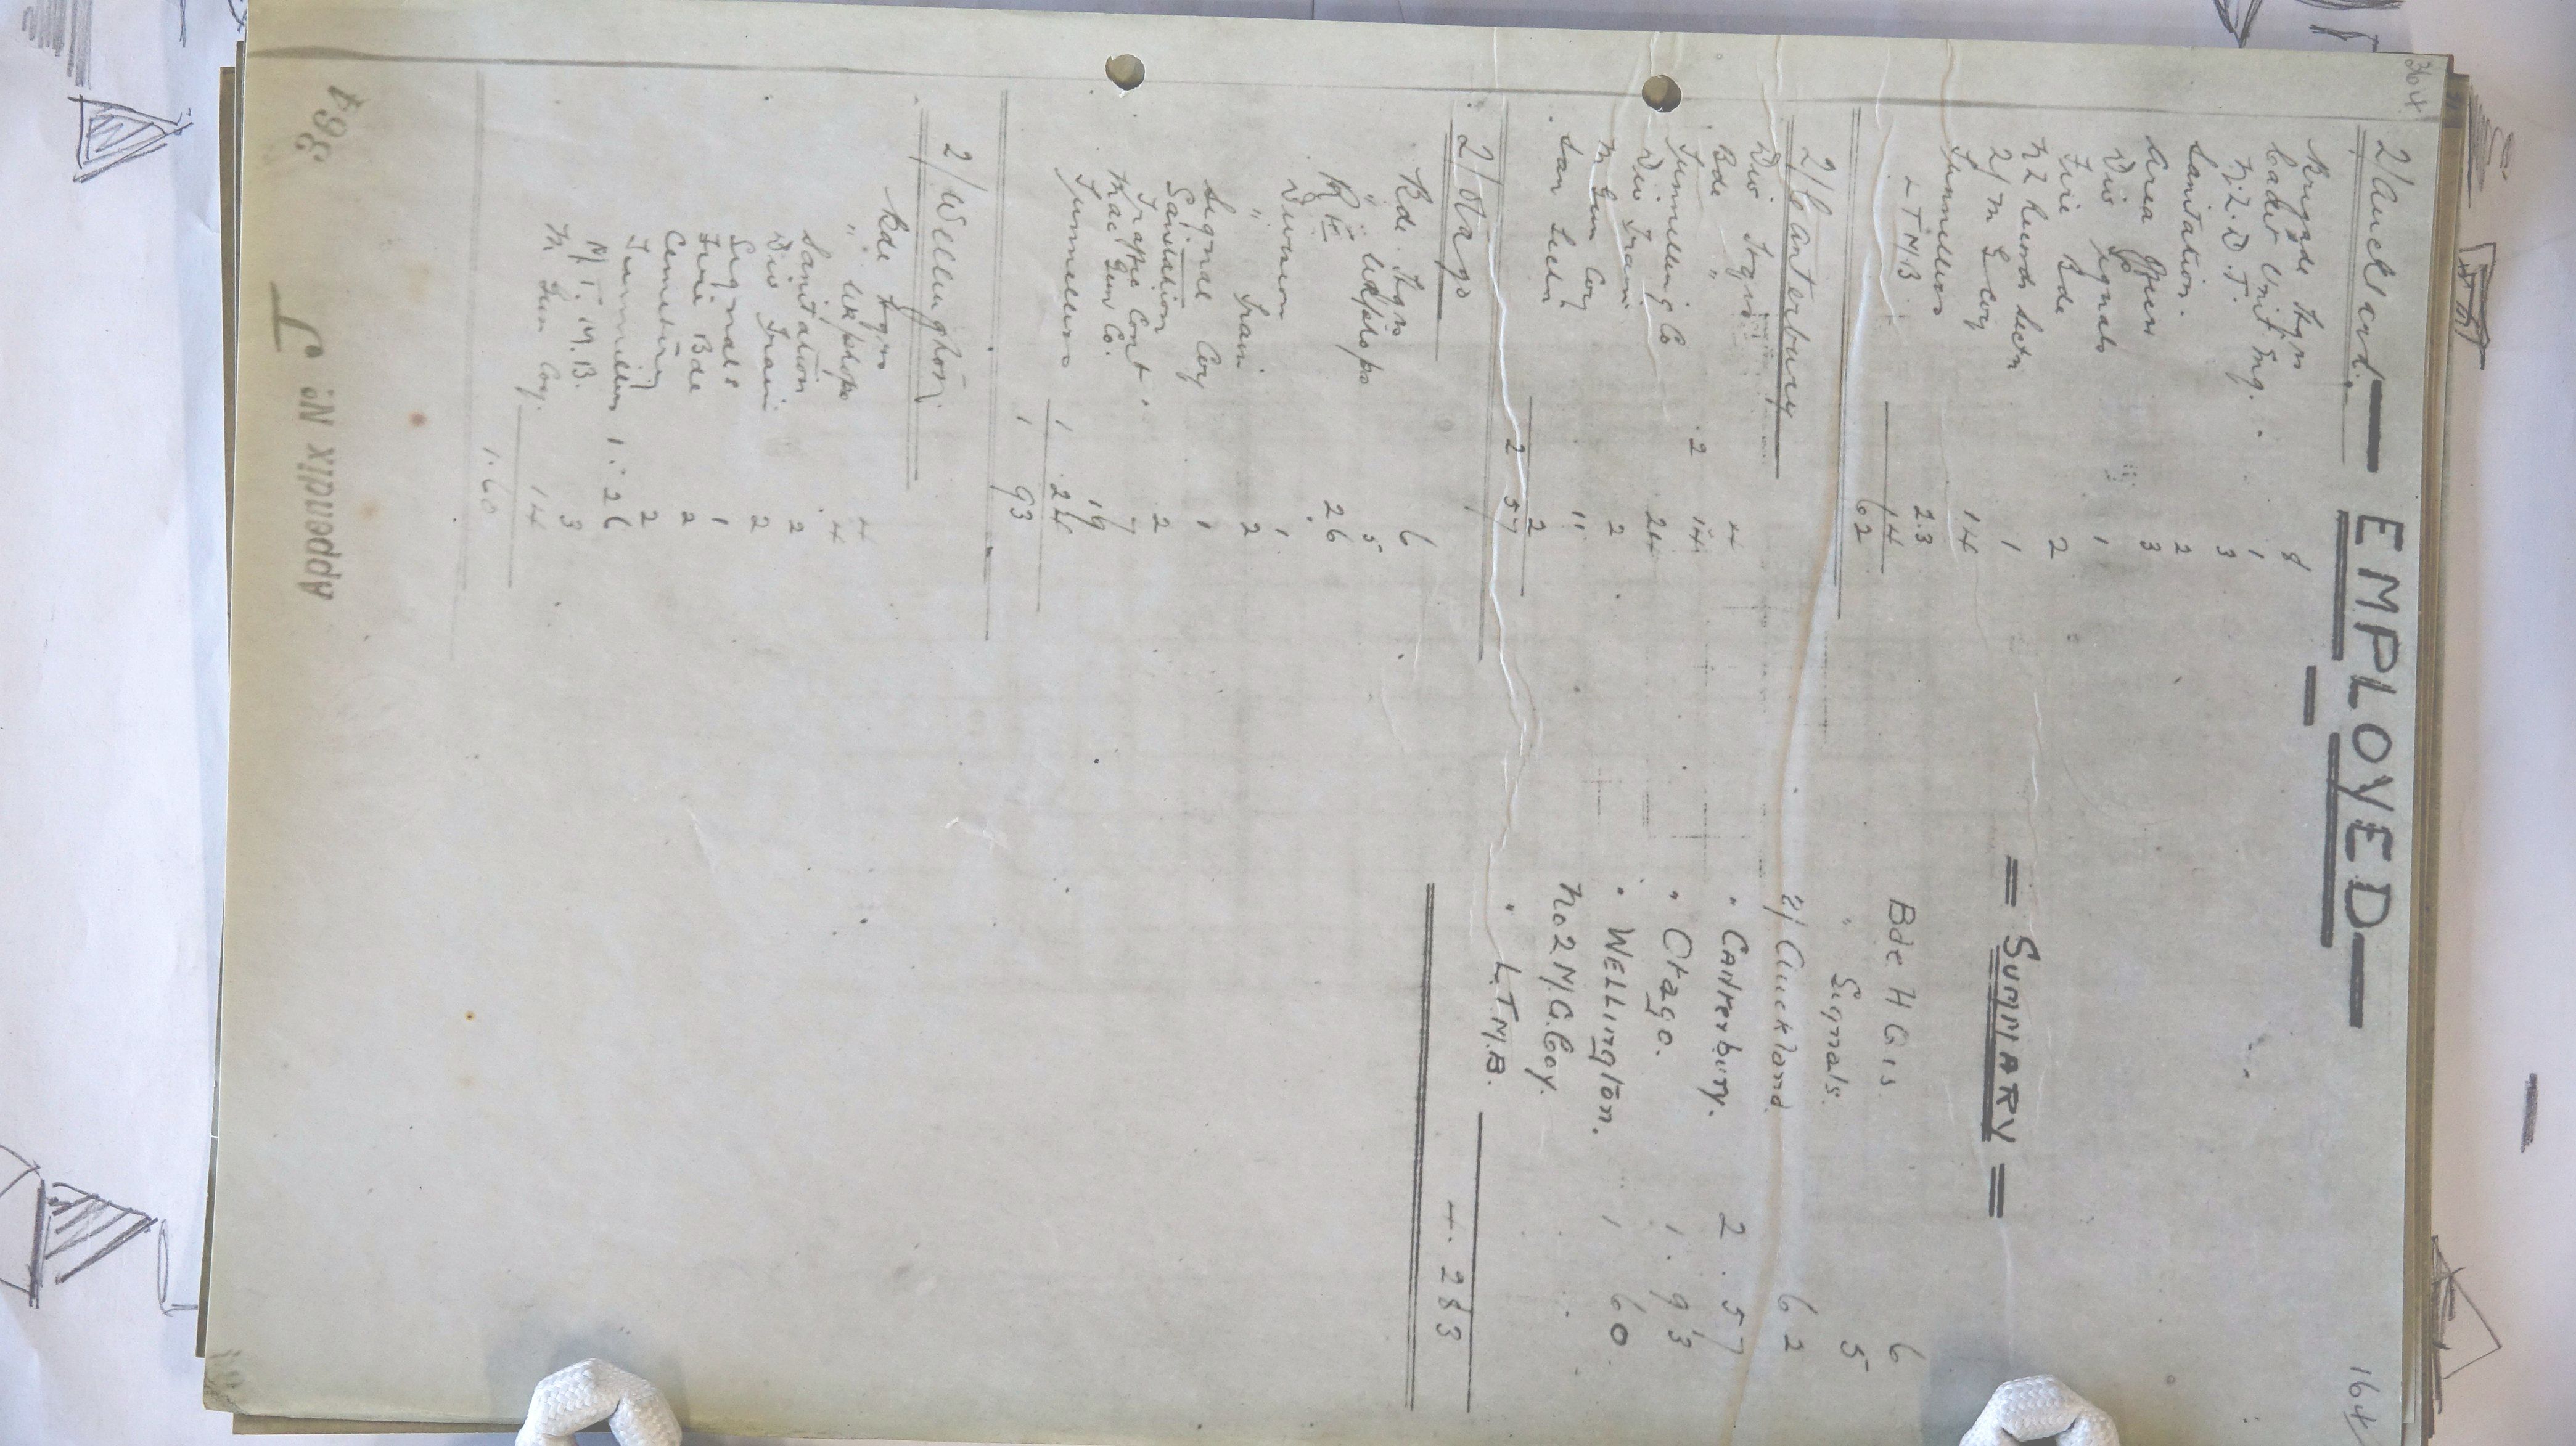 364
164
— EMPLOYED —
2/Auckland.
Brigade Hqrs 8
Cadet Unit Eng. 1
N.Z.D.T. 3
Sanitation. 2
Area Officer 3
Div Signals 1
Fire Bde 2
NZ Records Sectn 1
2/M G Coy 14
Tunnellers 23
L T M B 14
62
2/Canterbury
Div Hqrs 4
Bde " 14
Tunnelling Co 2 24
Div Train 2
M Gun Coy 11
San Sectn 2
2 57
2/Otago
Bde Hqrs 6
" Wkshops 5
R E 26
Division 1
" Train 2
Signal Coy 1
Sanitation 2
Traffic Cont. 7
Mac Gun Co. 19
Tunnellers 1 24
1 93
2/Wellington
Bde Hqrs 4
" Wkshops 4
Sanitation 2
Div Train 2
Signals 1
Fire Bde 2
Cemetery 2
Tunnellers 1 26
M.T.M.B. 3
M Gun Coy. 14
1.60
= SUMMARY =
Bde HQrs. 6
" Signals. 5
2/Auckland 62
" Canterbury. 2.57
" Otago. 1.93
" Wellington. 1 60
No 2 M.G. Coy.
" L.T.M.B.
4.283
364
Appendix No. J